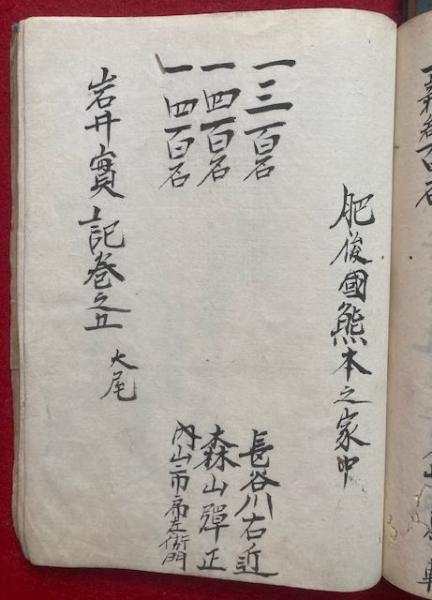 肥後國熊本之家中
一三百石 長谷川右近
一四百石 森山彈正
一四百石 内山市左衛門
岩井實記巻之五 大尾